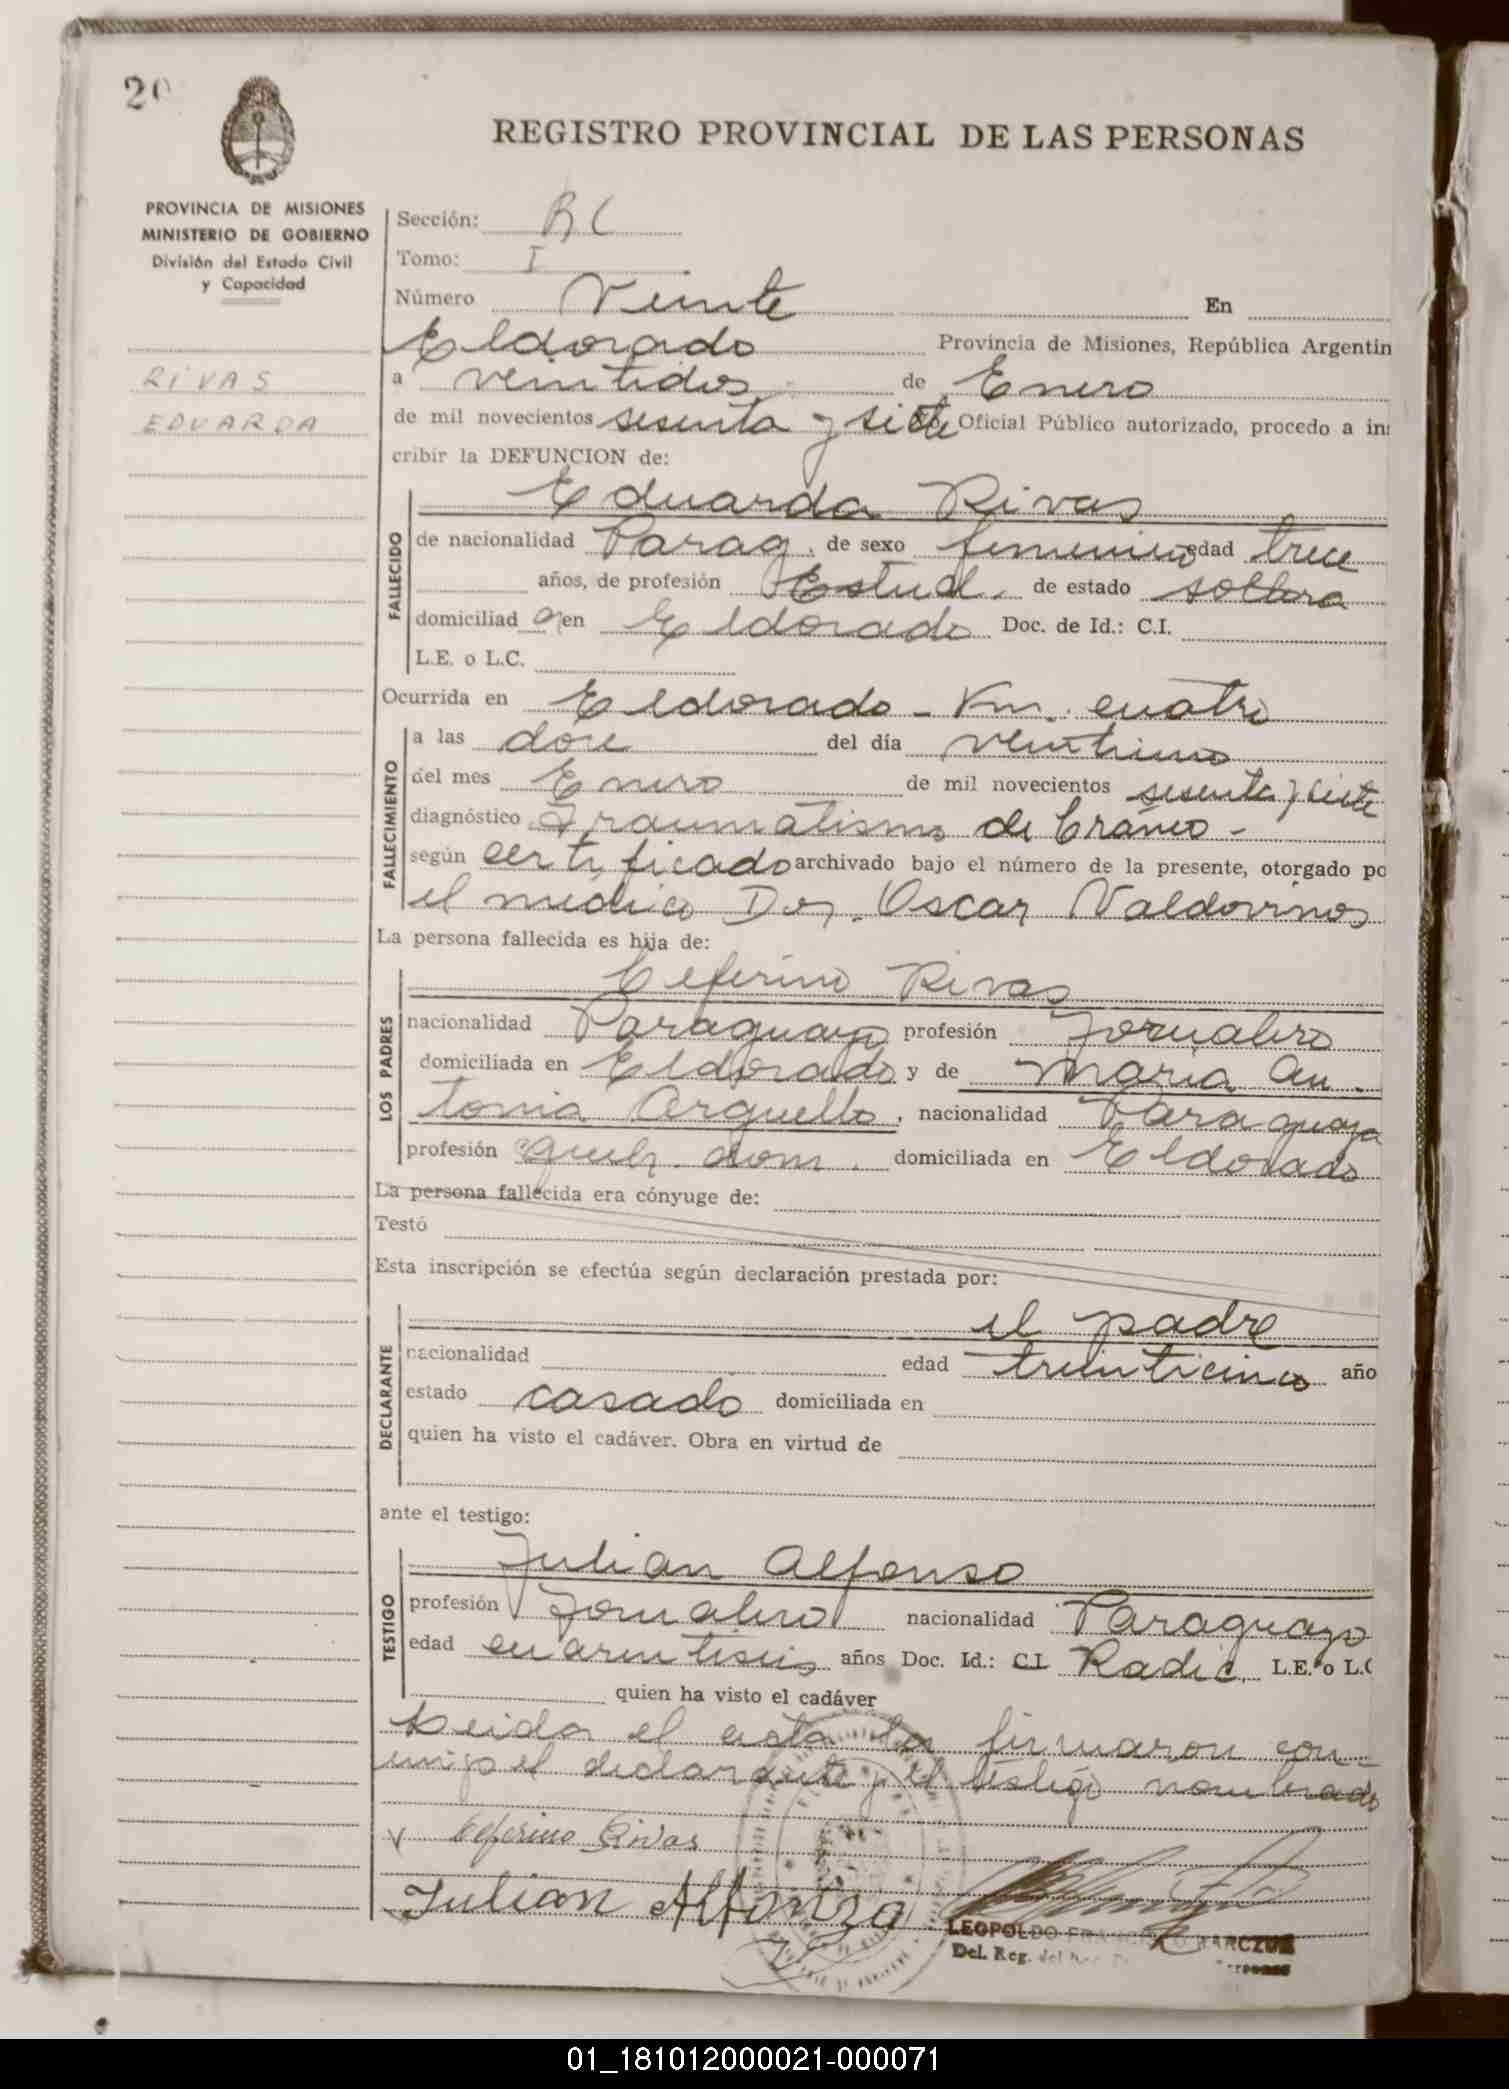 20
REGISTRO PROVINCIAL DE LAS PERSONAS
PROVINCIA DE MISIONES
MINISTERIO DE GOBIERNO
División del Estado Civil
y Capacidad
RIVAS
EDUARDA
Sección:
Tomo: I
Número Veinte En
Eldorado Provincia de Misiones, República Argentin
a veintidos de Enero
de mil novecientos sesenta y siete Oficial Público autorizado, procedo a ins
cribir la DEFUNCION de:
FALLECIDO
Eduarda Rivas
de nacionalidad Parag. de sexo femenino edad trece
años, de profesión Estud. de estado soltera
domiciliad a en Eldorado Doc. de Id.: C.I.
L.E. o L.C.
Ocurrida en Eldorado - Km. cuatro
FALLECIMIENTO
a las doce del día veintiuno
del mes Enero de mil novecientos sesenta y siete
diagnóstico Traumatismo de Craneo -
según certificado archivado bajo el número de la presente, otorgado po
el médico Dor. Oscar Valdovinos
La persona fallecida es hija de:
LOS PADRES
Ceferino Rivas
nacionalidad Paraguayo profesión Jornalero
domiciliada en Eldorado y de Maria An-
tonia Arguello, nacionalidad Paraguaya
profesión queh. dom. domiciliada en Eldorado
La persona fallecida era cónyuge de:
Testó
Esta inscripción se efectúa según declaración prestada por:
DECLARANTE
el padre
nacionalidad edad treinticinco año
estado casado domiciliada en
quien ha visto el cadáver. Obra en virtud de
ante el testigo:
TESTIGO
Julian Alfonso
profesión Jornalero nacionalidad Paraguayo
edad cuarentiseis años Doc. Id.: C.I. Radic. L.E. o L.C
quien ha visto el cadáver
Leida el acta la firmaron con-
migo el declarante y el testigo nombrado
Ceferino Rivas
Julian Alfonzo
LEOPOLDO FRANCISCO
Del. Reg. del
01_181012000021-000071